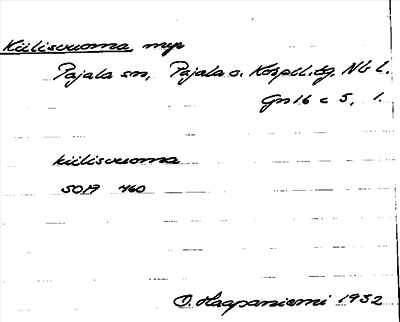 Kiilisvuoma, myr
Pajala sn, Pajala o. Korpil. tg, Nb l.
Gn 16 c 5, 1.
kiilisvuoma
5019 460
O. Haapaniemi 1932